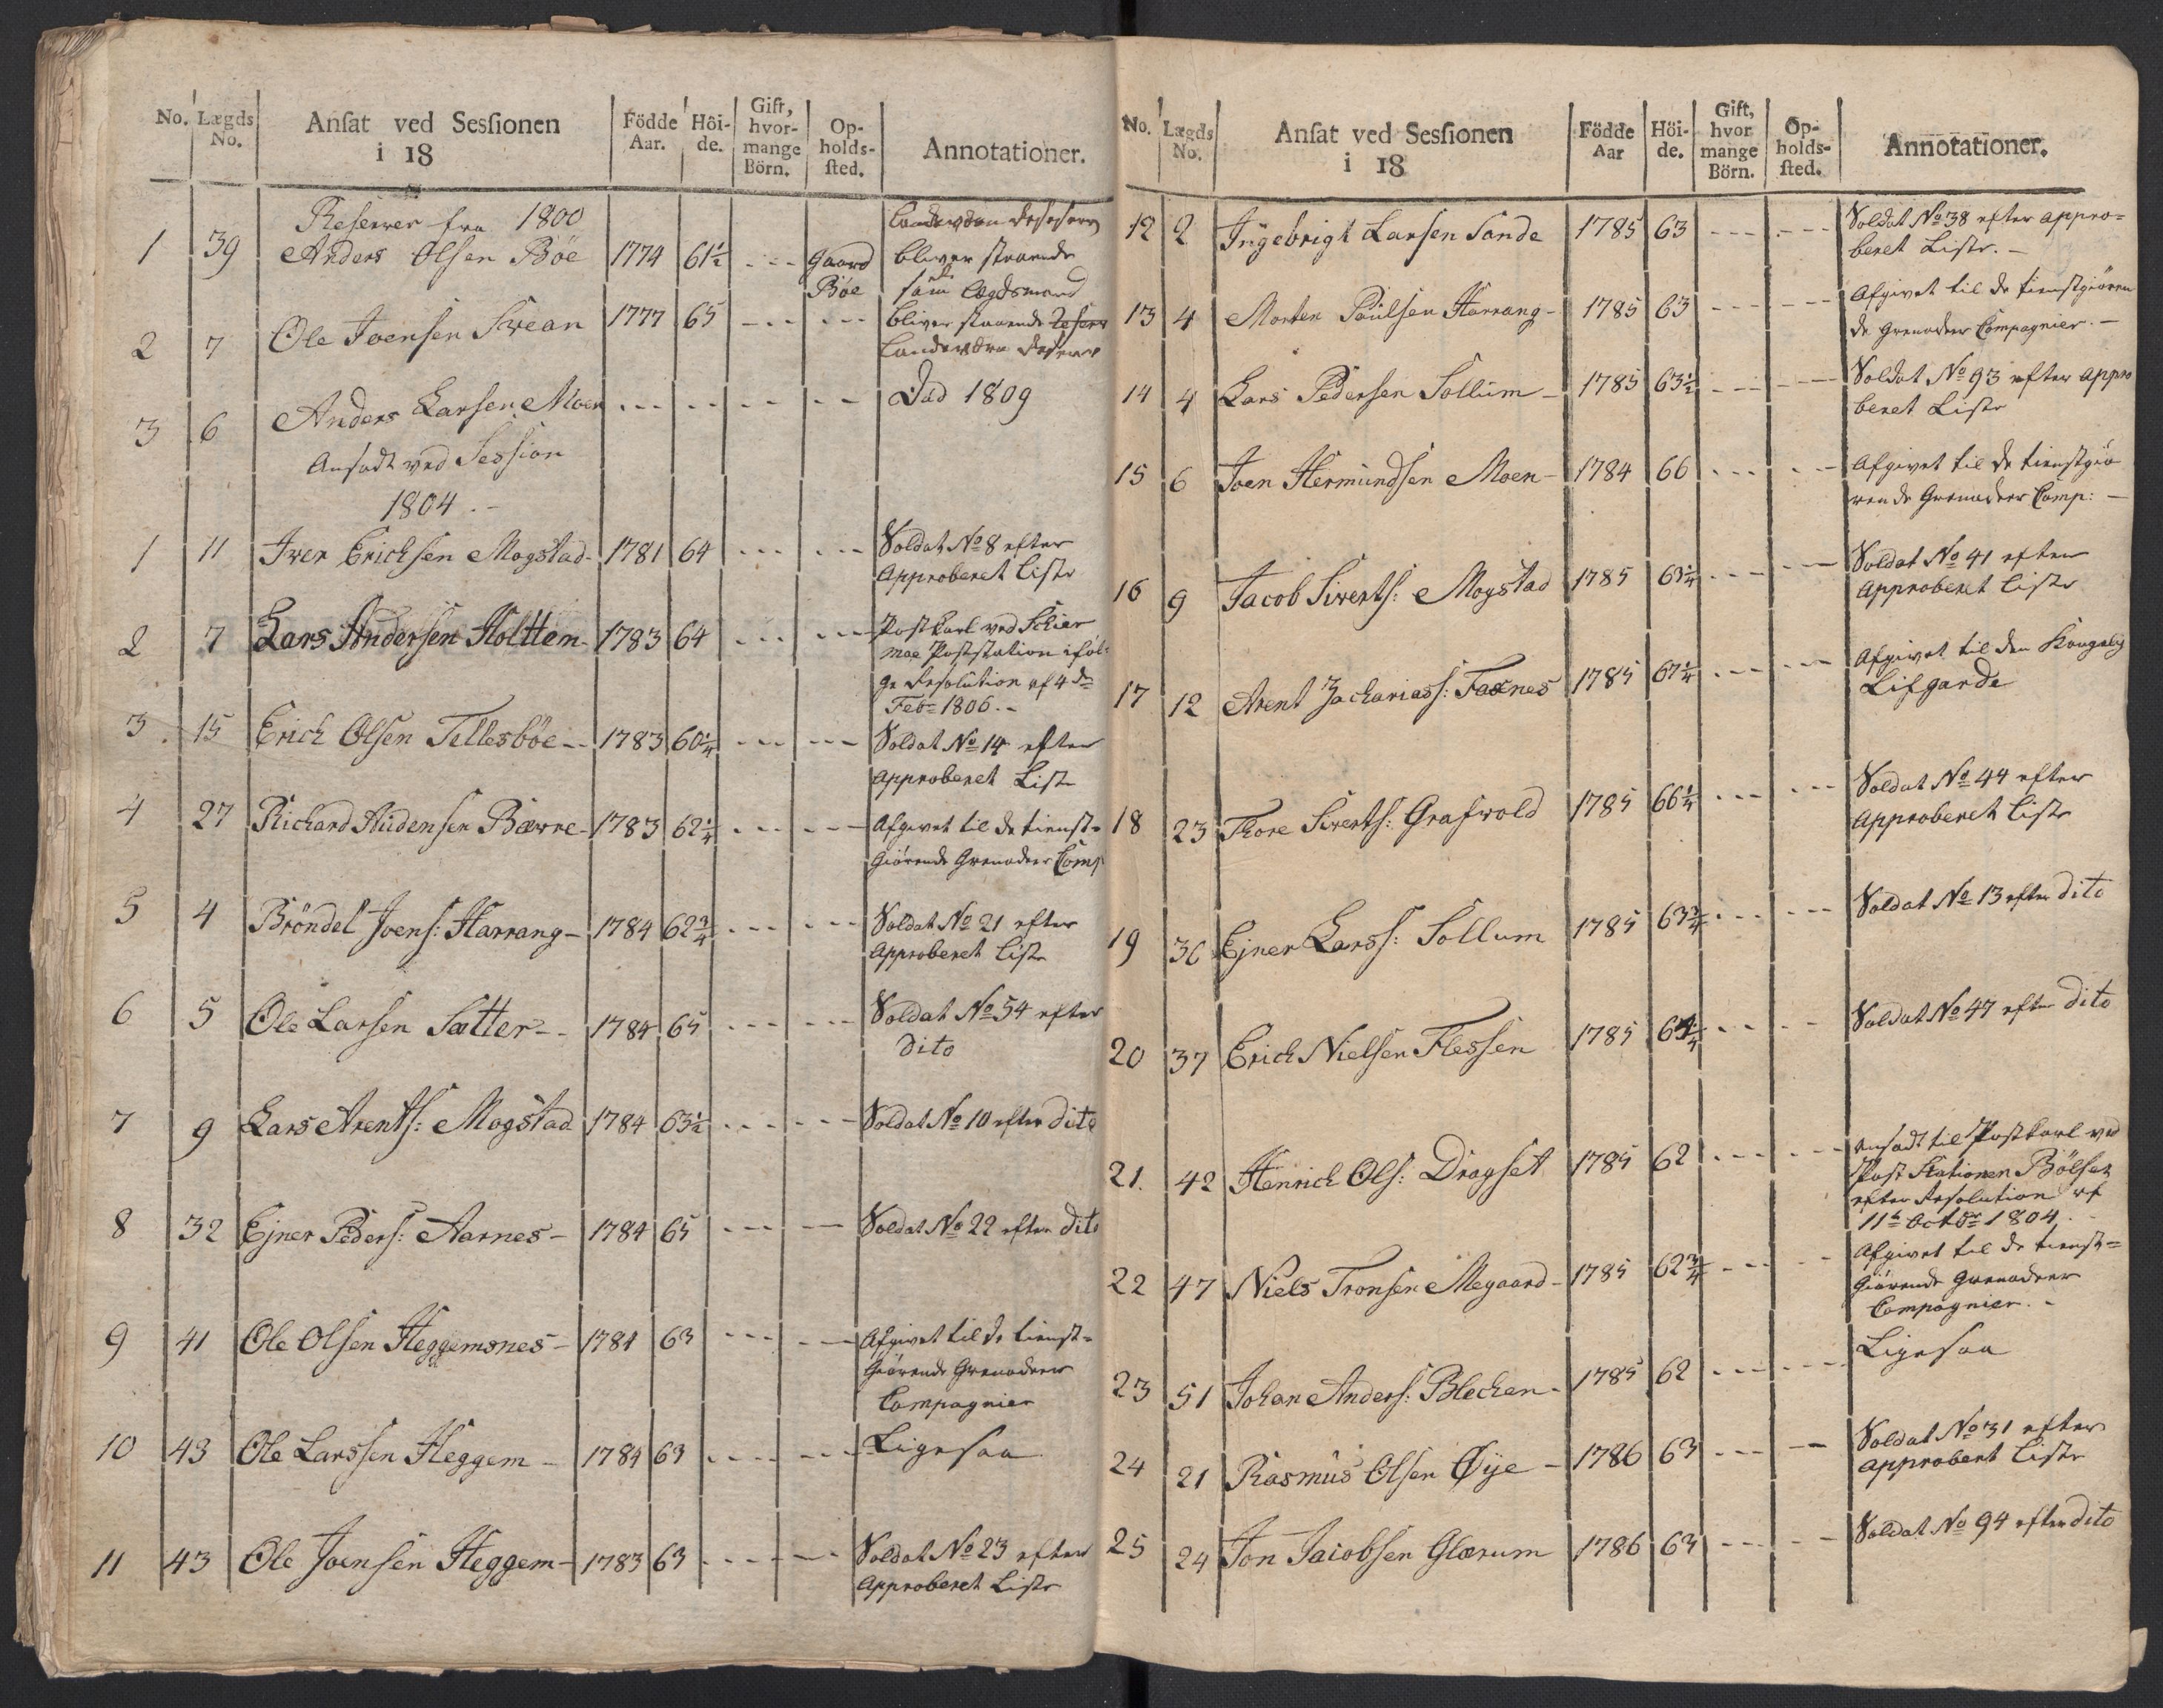 No. Lægds No. Ansat ved Sessionen i 18 Födde Aar. Höi-de. Gift, hvor-mange Börn. Op-holds-sted. Annotationer.
Reserver fra 1800
1 39 Anders Olsen Böe 1774 61½ --- Gaard Böe
bliver staaende
som Lægdsmand
2 7 Ole Joensen Swean 1777 65 --- --- bliver staaende
Landeværn Reserve
3 6 Anders Larsen Moen --- --- --- --- Död 1809
Ansadt ved Session
1804.-
1 11 Iver Erichsen Mogstad- 1781 64 --- --- Soldat No 8 efter
Approberet Liste
2 7 Lars Andersen Holttem- 1783 64 --- --- Postkarl ved Schier
moe Poststation iföl-
ge Resolution af 4de
Febr 1806.-
3 15 Erich Olsen Tellesböe-- 1783 60¼ --- --- Soldat No 14 efter
Approberet Liste
4 27 Richard Audensen Bævre- 1783 62¼ --- --- Afgivet til de tienst-
giörende Grenadeer Comp
5 4 Bröndel Joens: Harrang- 1784 62¾ --- --- Soldat No 21 efter
Approberet Liste
6 5 Ole Larsen Sætter-- 1784 65 --- --- Soldat No 54 efter
dito
7 9 Lars Arents: Mogstad 1784 63½ --- --- Soldat No 10 efter dito
8 32 Ejner Peders: Aarnes- 1784 65 --- -- Soldat No 22 efter dito
9 41 Ole Olsen Heggemsnes- 1784 63 --- --- Afgivet til de tienst-
Giörende Grenadeer
Compagnier
10 43 Ole Larssen Heggem- 1784 63 --- --- Ligesaa
11 43 Ole Joensen Heggem- 1783 63 --- --- Soldat No 23 efter
Approberet Liste
No. Lægds No. Ansat ved Sessionen i 18 Födde Aar Höi-de. Gift, hvor mange Börn. Op-holds-sted. Annotationer.
12 2 Ingebrigt Larsen Sande 1785 63 --- --- Soldat No 38 efter appro=
beret Liste.-
13 4 Morten Poulsen Harrang- 1785 63 --- --- Afgivet til de tienstgiören
de Grenadeer Compagnier.-
14 4 Lars Pedersen Sollum- 1785 63½ --- --- Soldat No 93 efter appro
beret Liste
15 6 Joen Hermundsen Moen- 1784 66 --- --- Afgivet til de tienstgiö
rende Grenadeer Comp:-
16 9 Jacob Siverts: Mogstad 1785 63¼ --- --- Soldat No 41 efter
Approberet Liste
17 12 Arent Zachariass: Faxnes 1785 67¼ --- --- Afgivet til den Kongelig
Lifgarde
18 23 Thore Siverts: Grafvold 1785 66¼ --- --- Soldat No 44 efter
Approberet Liste
19 36 Ejner Larss: Sollum 1785 63¾ --- --- Soldat No 13 efter dito
20 37 Erich Nielsen Flessen 1785 --- -- Soldat No 47 efter dito
21. 42 Henrich Ols: Dragset 1785 62 --- --- Ansadt til Postkarl ved
Post Stationen Bölset
efter Resolution af
11te Octobr 1804.
22 47 Niels Tronsen Megaard- 1785 62¾ --- -- Afgivet til de tienst=
Giörende Grenadeer
Compagnier.-
23 51 Johan Anders: Blechen- 1785 62 --- --- Ligesaa
24 21 Rasmus Olsen Øye- 1786 63 --- -- Soldat No 31 efter
approbert Liste
25 24 Jon Jacobsen Glærum 1786 63 --- -- Soldat No 94 efter dito